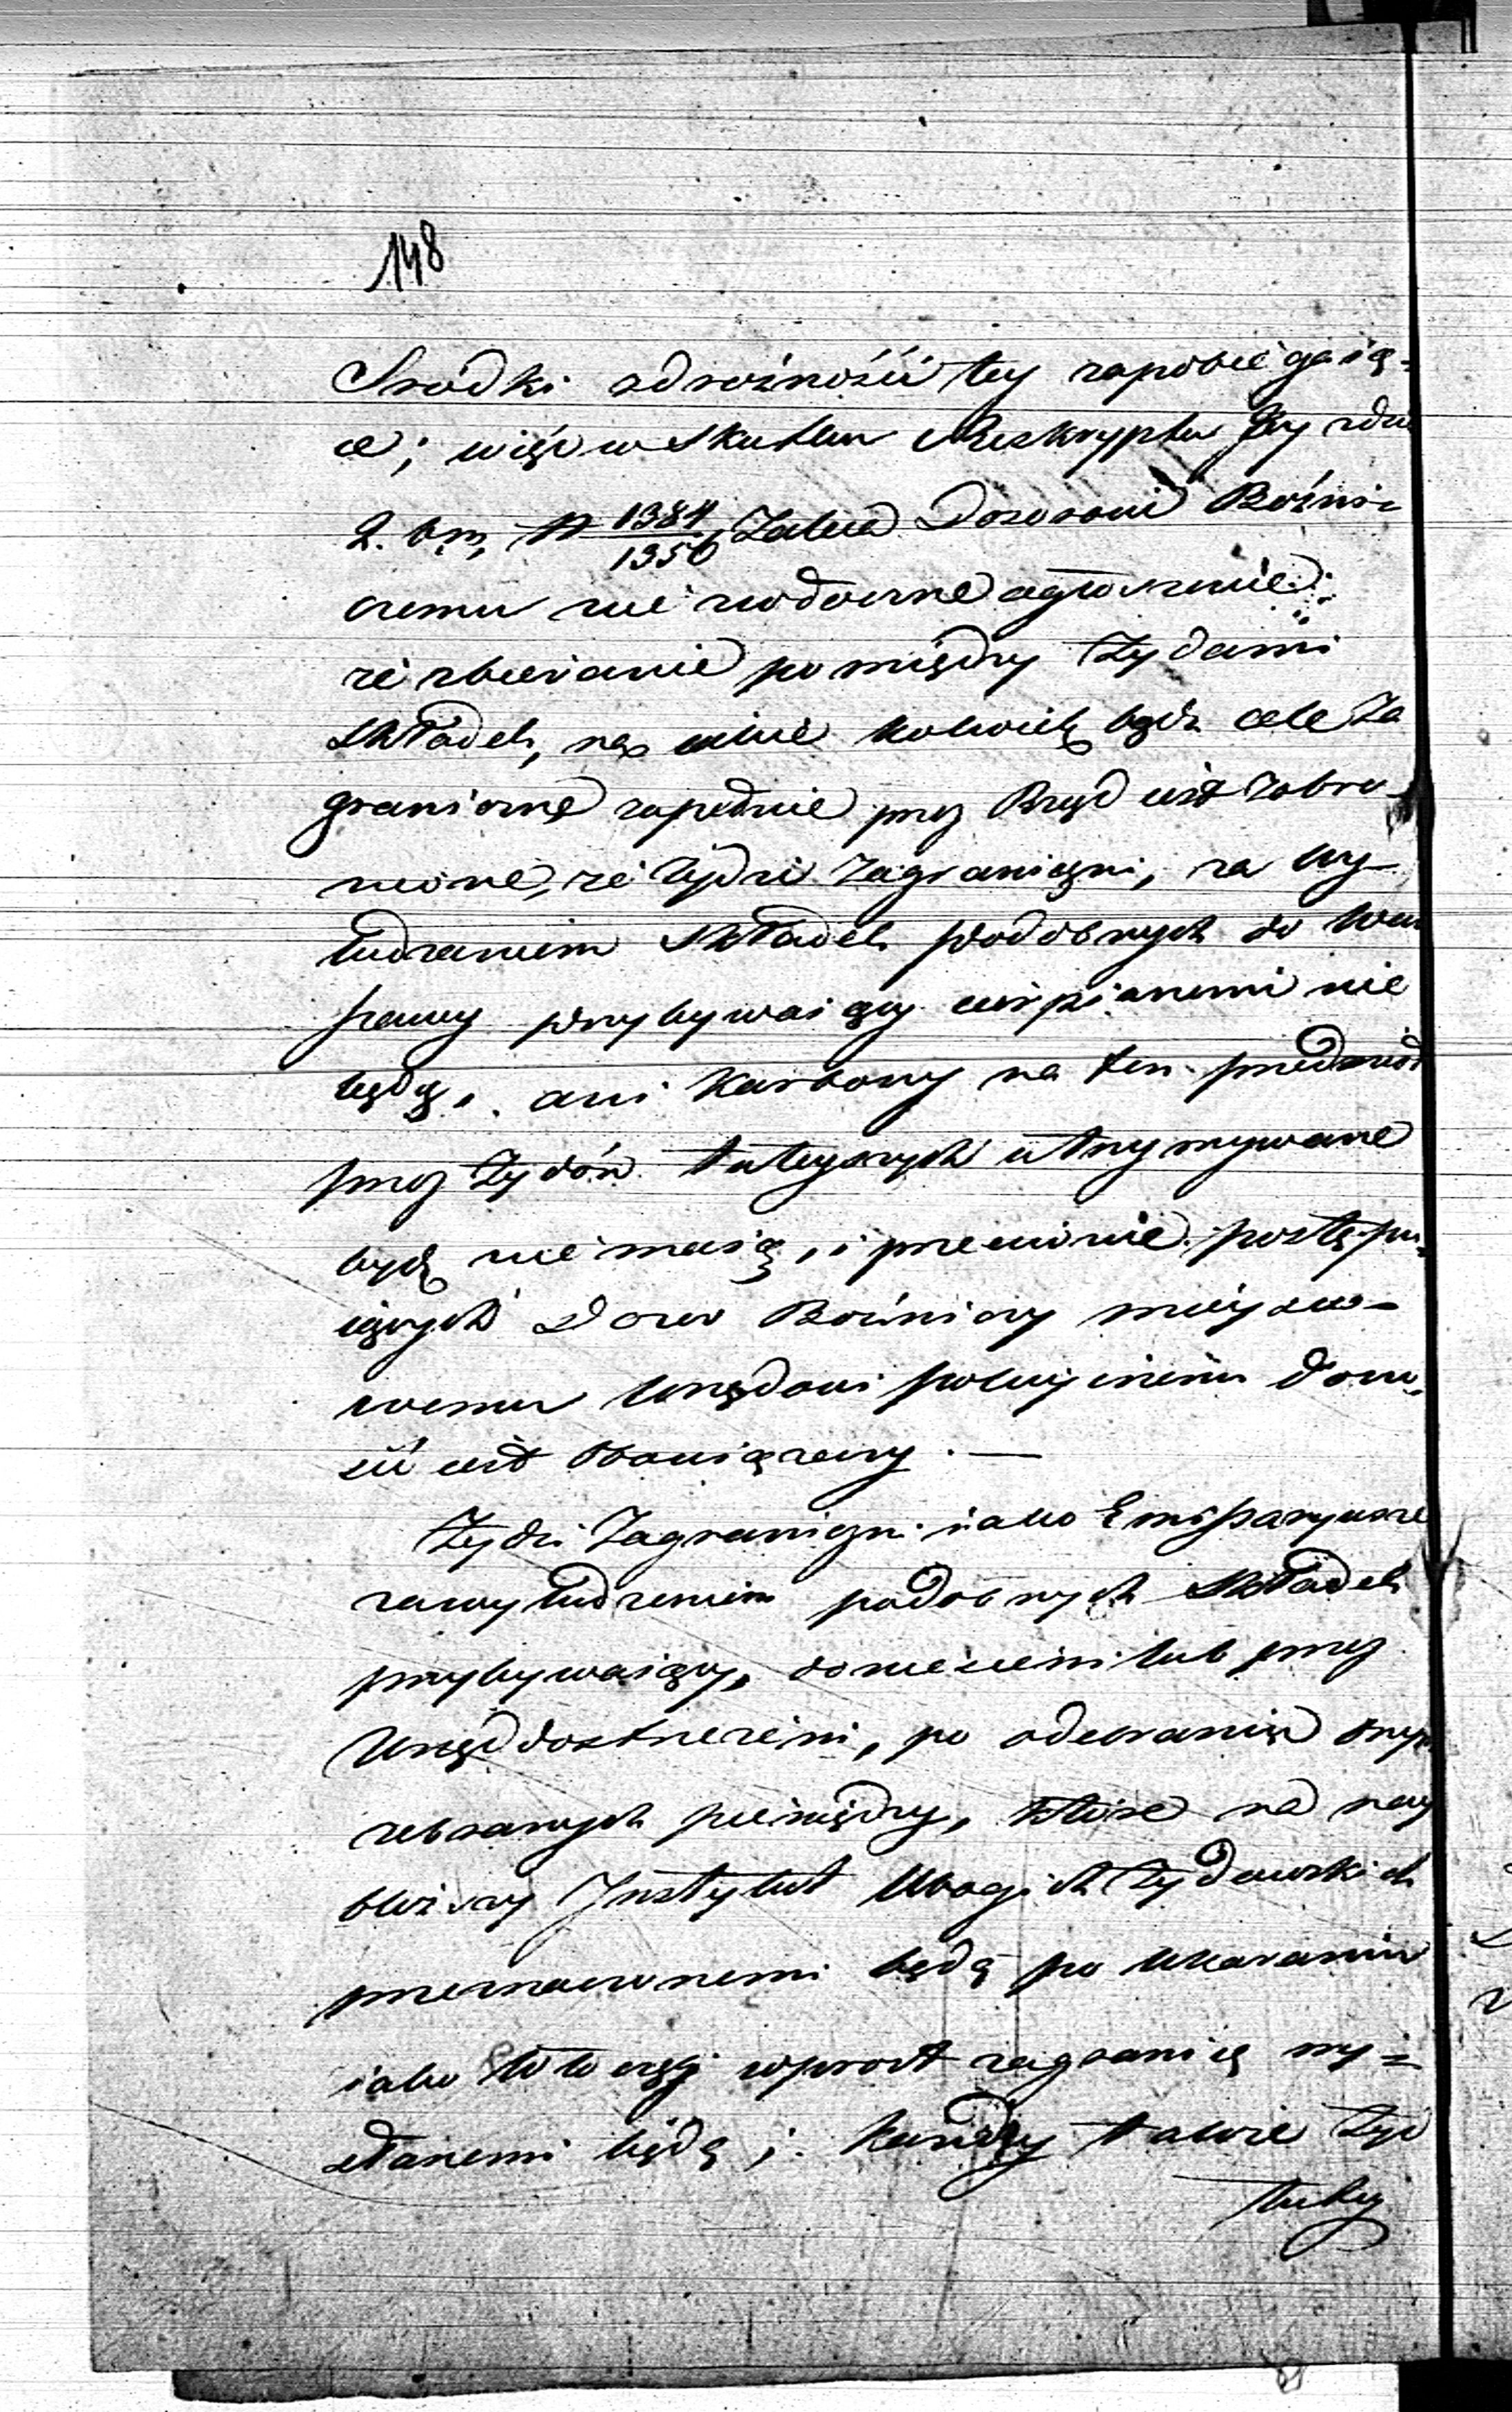 148
Srodki zdrożności tey zapobiegaią=
ce; więc w skutku Reskryptu Jey zdnia
2. b.m. N 1384/1356 Zaleca Dozorowi Bożni=
cznemu nie zwłoczne ogłoszenie:
że zbieranie pomiędzy Żydami
składek, na iakie kolwiek bądź cele Za
graniczne zupełnie przez Rząd iest zabro-
nione, że Żydzi Zagraniczni, za wy-
łudzaniem składek podobnych do War
szawy przybywaiący cierpianemi nie
będą, ani Karbony na ten przedmiot
przez Żydów tuteyszych utrzymywane
być nie maią, i przeciwnie postępu=
iących Dozor Bożniczy mieysco-
wemu Urzędowi policyinemu donie
ść iest obowiązany. —
Żydzi Zagraniczni iako Emissaryusze
za wyłudzeniem podobnych składek
przybywaiący, doniesieni lub przez
Urząd dostrzeżeni, po odebraniu
zebranych pieniędzy, które na nay
bliższy Instytut Ubogich Żydowskich
przeznaczonemi będą po ukaraniu
iako włóczęgi wprost zagranicę wy=
słanemi będą; Każdy także Żyd
tutey